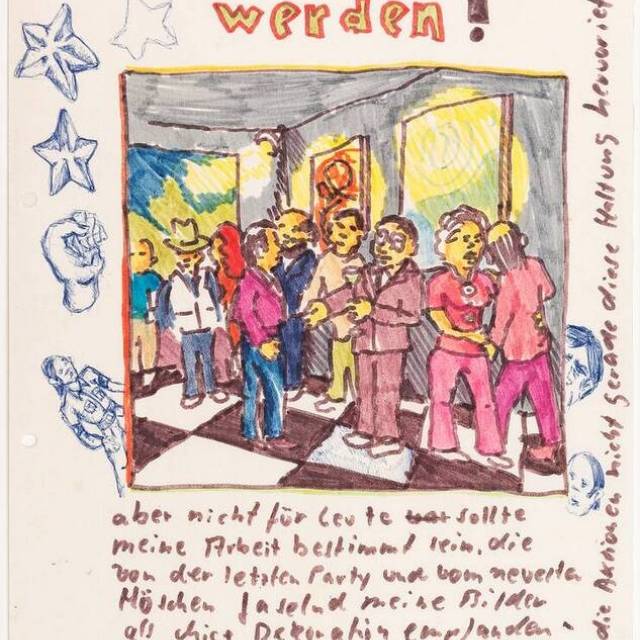 werden!
aber nicht für Leute sollte
meine Arbeit bestimmt sein, die
von der letzten Party und vom neuesten
Höschen faselnd meine Bilder
als chice Dekoration empfanden -
die Aktionen nicht gerade diese Haltung hervorrief